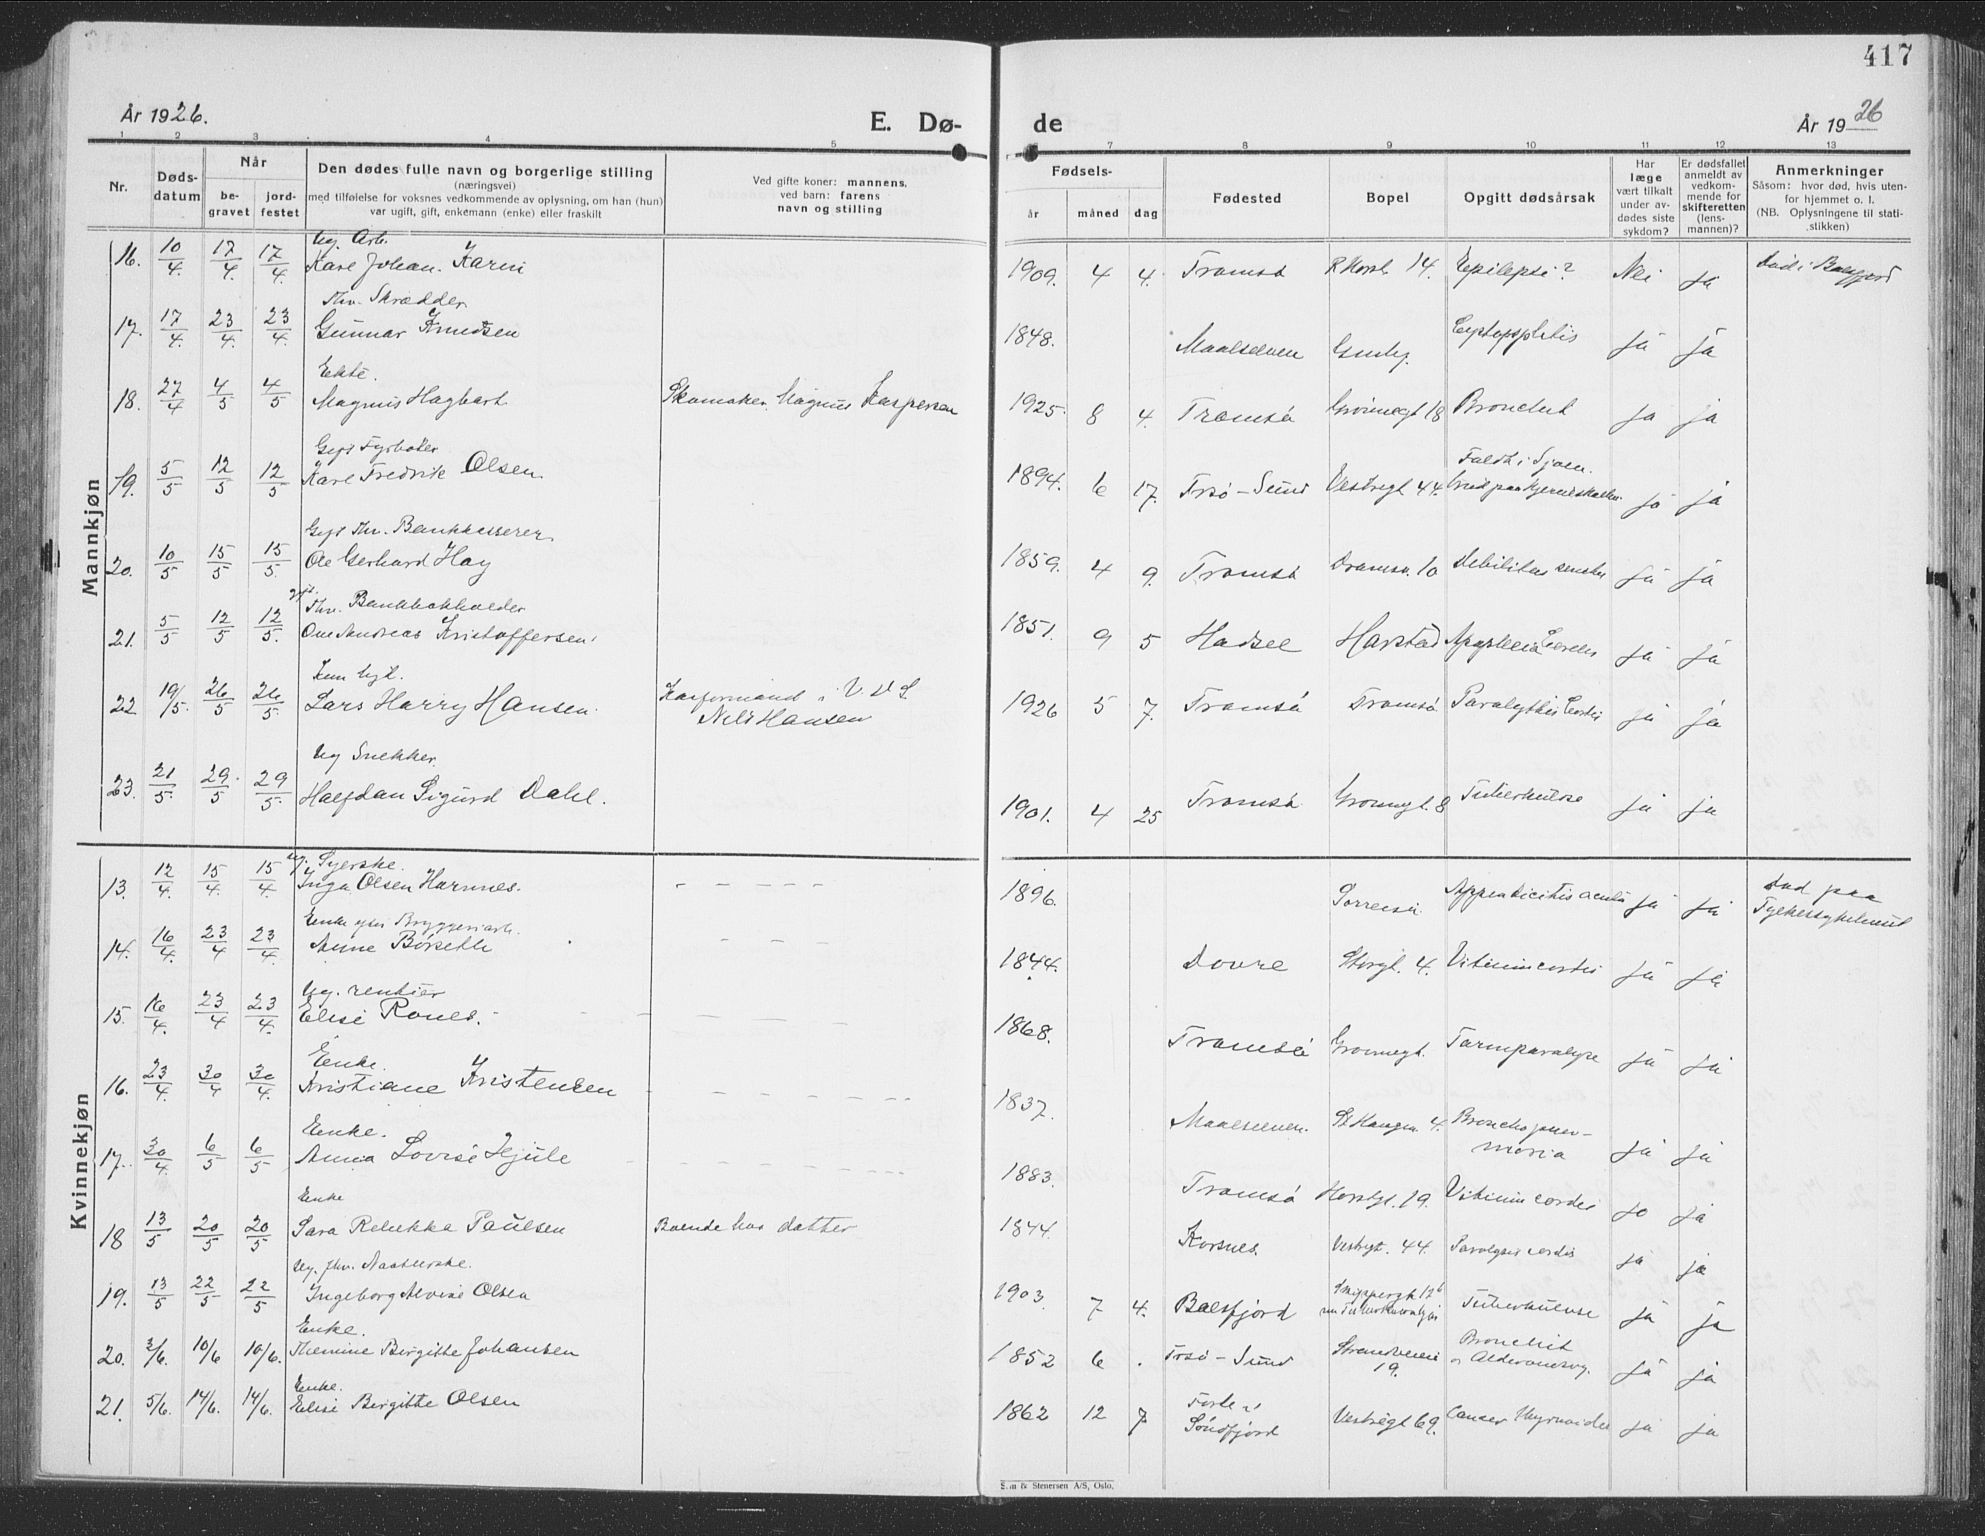 417
År 1926.
E. Dø-
de
År 1926
1 2 3 4 5
7 7 8 9 10 11 12 13
Nr.
Døds-
datum
Når
be-
gravet
jord-
festet
Den dødes fulle navn og borgerlige stilling
(næringsvei)
med tilføielse for voksnes vedkommende av oplysning, om han (hun)
var ugift, gift, enkemann (enke) eller fraskilt
Ved gifte koner: mannens,
ved barn: farens
navn og stilling
Fødsels-
år
måned
dag
Fødested
Bopel
Opgitt dødsårsak
Har
læge
vært tilkalt
under av-
dødes siste
sykdom?
Er dødsfallet
anmeldt av
vedkom-
mende for
skifteretten
(lens-
mannen)?
Anmerkninger
Såsom: hvor død, hvis uten-
for hjemmet o. l.
(NB. Oplysningene til stati-
stikken)
Mannkjøn
Ug. Arb.
16. 10/4 17/4 17/4. Karl Johan. Karni 1909. 4 4. Tromsø 14. Epilepsi? Nei ja Død i Balsfjord
Fhv. Skrædder
17. 17/4. 23/4. 23/4. Gunnar Knudsen 1848. Maalselven ja ja
Ekte.
18. 27/4 4/5 4/5 Magnus Hagbart Skomaker Magnus Kaspersen 1925. 8 4. Tromsø Grønnegt 18 Bronchit ja ja
Gift Fyrbøter
19. 5/5 12/5 12/5 Karl Fredrik Olsen. 1894. 6 17. Trsø-Sund Vestregt 44. Faldt i Sjøen. ja ja
Gift Fhv. Bankkasserer.
20. 10/5 15/5 15/5. Ole Gerhard Hay 1859. 4 9. Tromsø Dramsv. 10 Debilitas senilis ja ja
gift. Fhv. Bankbokholder
21. 5/5 12/5 12/5. Ove Andreas Kristoffersen. 1851. 9 5 Hadsel Harstad Apoplexia Cerebri ja ja
22 19/5. 26/5 26/5. Lars Harry Hansen. Karformand i V. D S. 1926 5 7. Tromsø Tromsø Paralythis Cordis ja ja
Nils Hansen
Ug Snekker.
23. 21/5. 29/5 29/5. Halfdan Sigurd Dahl. 1901. 4 25 Tromsø Gronnegt. 8 Tuberkulose ja ja
Kvinnekjøn
ug. Syerske.
13. 12/4. 15/4. 15/4. Inga Olsen Hamnes. 1896. Sørreisa Appendicitis acuta ja ja Død paa
Fylkessykehuset
Enke efter Bryggeriarb.
14. 16/4. 23/4 23/4. Anne Børseth 1844. Dovre Storgt. 4. Vitium cordis ja ja
Ug. rentier
15. 16/4. 23/4 23/4. Elise Rones. 1868. Tromsø Gronnegt. Tarmparalyse ja ja
Enke.
16. 23/4. 30/4 30/4. Kristiane Kristensen 1837. Maalselven. 4. Bronchopneu-
monia ja ja
Enke.
17. 30/4 6/5 6/5 Anna Lovise Hjule 1883. Tromsø 19. Vitium cordis ja ja
Enke
18 13/5 20/5 20/5 Sara Rebekka Paulsen Boende hos datter 1844. Korsnes. Vestregt. 44. Paralysis cordis ja ja
Ug. fhv.
19. 13/5 22/5 22/5 Ingeborg Alvine Olsen 1903. 7 4. Balsfjord Skippergt 12b Tuberkulose ja ja
Enke.
20. 3/6. 10/6 10/6. Birgitte Johansen 1852 6 . Trsø-Sund Strandveien
19. Bronchit
og Alderdomssvag. ja ja
Enke.
21. 5/6. 14/6. 14/6. Elise Birgitte Olsen 1862 12 7 Førde i
Søndfjord Vestregt 69. Cancer thyreoidea ja ja
& Stenersen A/S, Oslo.